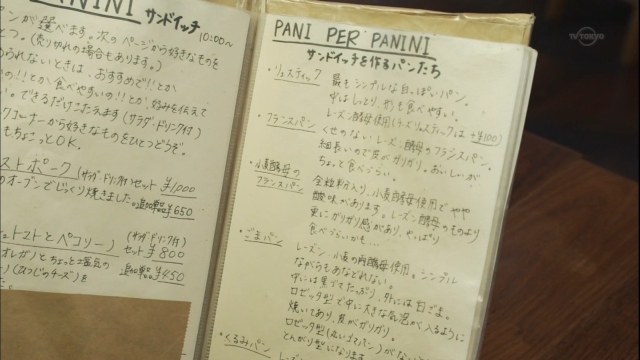 PANINI サンドイッチ
10:00〜
パンが選べます。次のページから好きなものを
とつ。(売り切れの場合もあります。)
られないときは、おすすめで!!とか
の!!とか食べやすいの!!とか、好みを伝えて
い。できるだけこたえます(サラダ・ドリンク付)
コーナーから好きなものをひとつどうぞ。
もちょこっとOK.
ストポーク (サラダ・ドリンク付)セット ¥1,000
のオーブンでじっくり焼きました。追加単品¥650
トマトとペコリーノ (サラダ・ドリンク付)
セット ¥800
オレガノとちょっと塩気の
追加単品¥450
(ひつじのチーズ)を
PANI PER PANINI
サンドイッチを作るパンたち
・リュスティック
最もシンプルな白っぽいパン。
中はしっとり、形も食べやすい。
レーズン酵母使用(チーズリュスティックは+¥100)
・フランスパン
くせのない、レーズン酵母のフランスパン。
細長いので皮がガリガリ。おいしいが
ちょっと食べづらい。
・小麦酵母の
フランスパン
全粒粉入り、小麦酵母使用でやや
酸味があります。レーズン酵母のものより
更にガリガリ感があり、やっぱり
食べづらいかも…
・ごまパン
レーズン、小麦の両酵母使用。シンプル
ながらもあなどれない。
中には黒ごまたっぷり、外には白ごま。
ロゼッタ型で中に大きな気泡が入るように
焼いてあり、皮がガリガリ。
ロゼッタ型(丸いゴマパン)がないとき
とんがり型になります
・くるみパン
レーズン
TV TOKYO